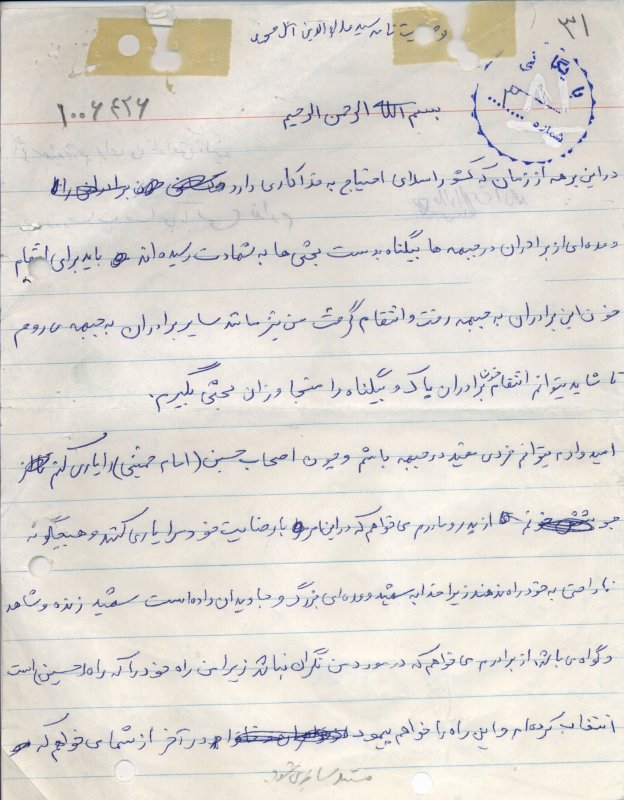 ۳۱
وصیت نامه سید علاءالدین آل محمد
بایگانی
شماره
۱۰۰۶۴۲۶
بسم الله الرحمن الرحیم
در این برهه از زمان که کشور اسلامی احتیاج به فداکاری دارد
و عده‌ای از برادران در جبهه ها بیگناه بدست بعثی ها به شهادت رسیده‌اند باید برای انتقام
خون این برادران به جبهه رفت و انتقام گرفت من نیز مانند سایر برادران به جبهه می روم
تا شاید بتوانم انتقام خون برادران پاک و بیگناه را از متجاوزان بعثی بگیرم.
امیدوارم بتوانم فردی مفید در جبهه باشم و چون اصحاب حسین (امام خمینی) را یاری کنم
از پدر و مادرم می خواهم که در این امر با رضایت خود مرا یاری کنند و هیچگونه
ناراحتی به خود راه ندهند زیرا خدا به شهید وعده‌ای بزرگ و جاویدان داده است شهید زنده و شاهد
و گواه می باشد، از برادرم می خواهم که در مورد من نگران نباشد زیرا من راه خود را که راه (حسین) است
انتخاب کرده‌ام و این راه را خواهم پیمود در آخر از شما می خواهم که